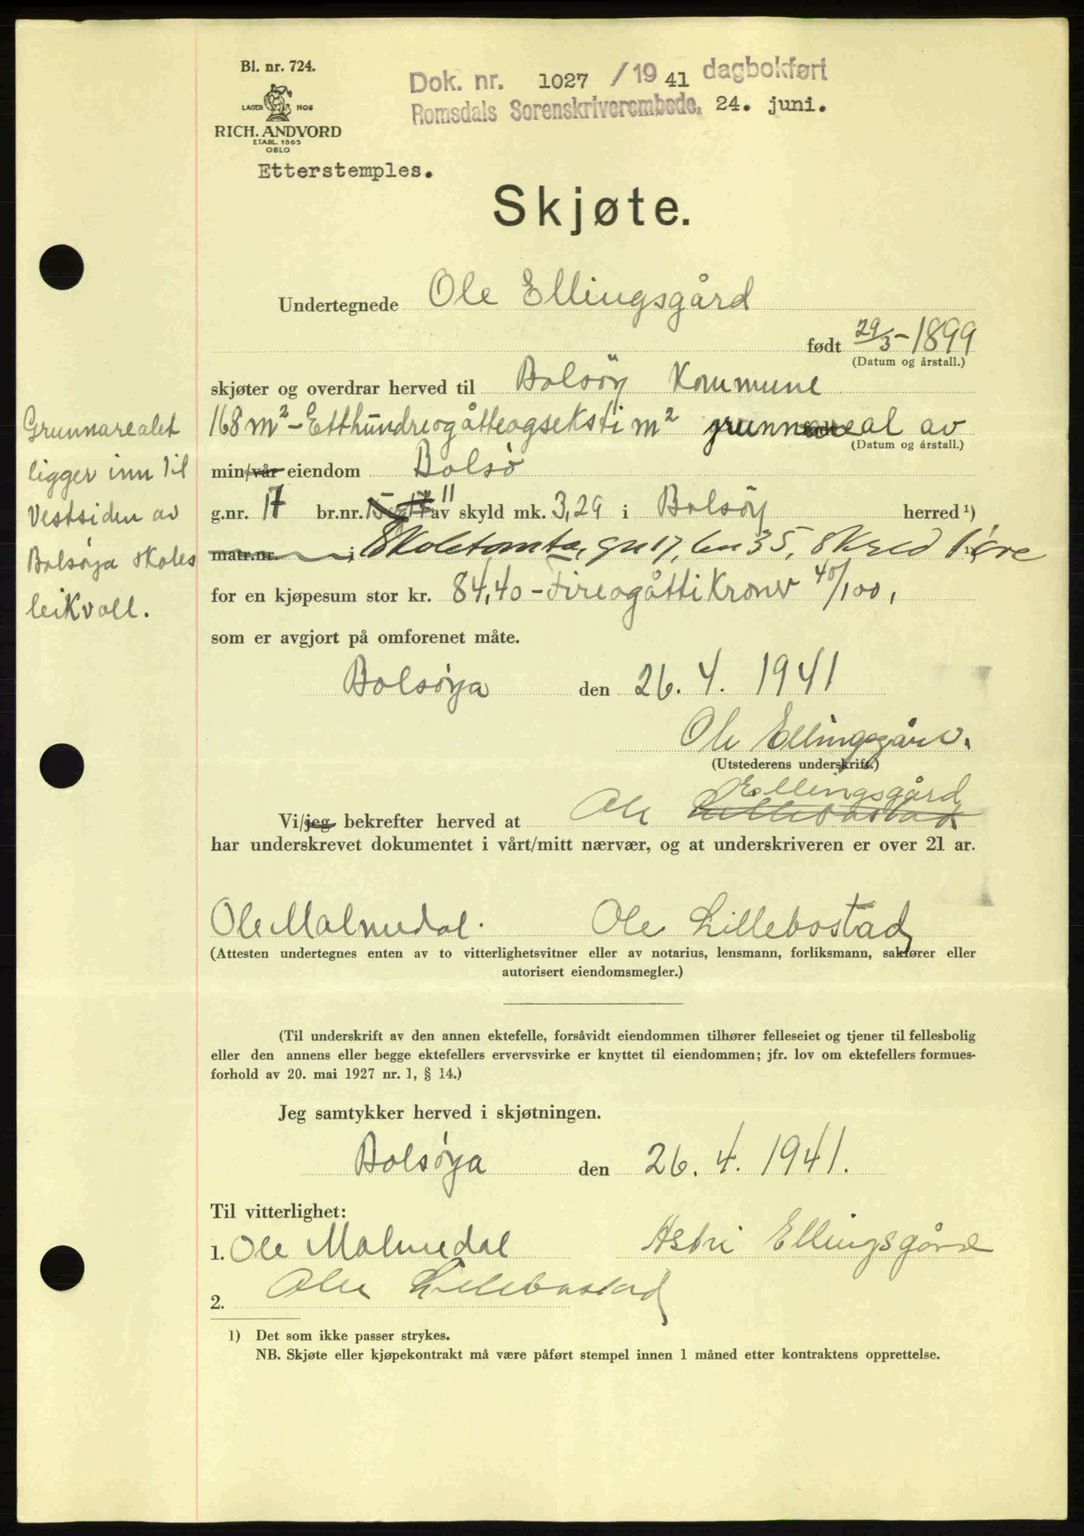 Bl. nr. 724.
LAGER HOS
RICH. ANDVORD
ETABL. 1865
OSLO
Etterstemples.
Dok. nr. 1027 /19 41 dagbokført
Romsdals Sorenskriverembede, 24. juni.
Skjøte.
Undertegnede Ole Ellingsgård
født 29/3-1899
(Datum og årstall.)
skjøter og overdrar herved til Bolsöy Kommune
168 m² - Etthundreogåtteogseksti m² grunnareal av
(Datum og årstall.)
min/vår eiendom Bolsö
g.nr. 17 br.nr. 11 av skyld mk. 3,29 i Bolsöy herred ¹)
matr.nr. i Skoletomta, gn 17, bn 35, skyld 1 øre
for en kjøpesum stor kr. 84,40 - Fireogåtti Kroner 40/100,
som er avgjort på omforenet måte.
Bolsöya den 26. 4. 1941
Ole Ellingsgård.
(Utstederens underskrift.)
Ellingsgård
Vi/jeg bekrefter herved at Ole Lillebostad
har underskrevet dokumentet i vårt/mitt nærvær, og at underskriveren er over 21 ar.
Ole Malmedal. Ole Lillebostad
(Attesten undertegnes enten av to vitterlighetsvitner eller av notarius, lensmann, forliksmann, sakfører eller
autorisert eiendomsmegler.)
(Til underskrift av den annen ektefelle, forsåvidt eiendommen tilhører felleseiet og tjener til fellesbolig
eller den annens eller begge ektefellers ervervsvirke er knyttet til eiendommen; jfr. lov om ektefellers formues-
forhold av 20. mai 1927 nr. 1, § 14.)
Jeg samtykker herved i skjøtningen.
Bolsöya den 26. 4. 1941.
Til vitterlighet:
1. Ole Malmedal Astri Ellingsgård
2. Ole Lillebostad
1) Det som ikke passer strykes.
NB. Skjøte eller kjøpekontrakt må være påført stempel innen 1 måned etter kontraktens opprettelse.
Grunnarealet
ligger inn til
Vestsiden av
Bolsöya skoles
leikvoll.